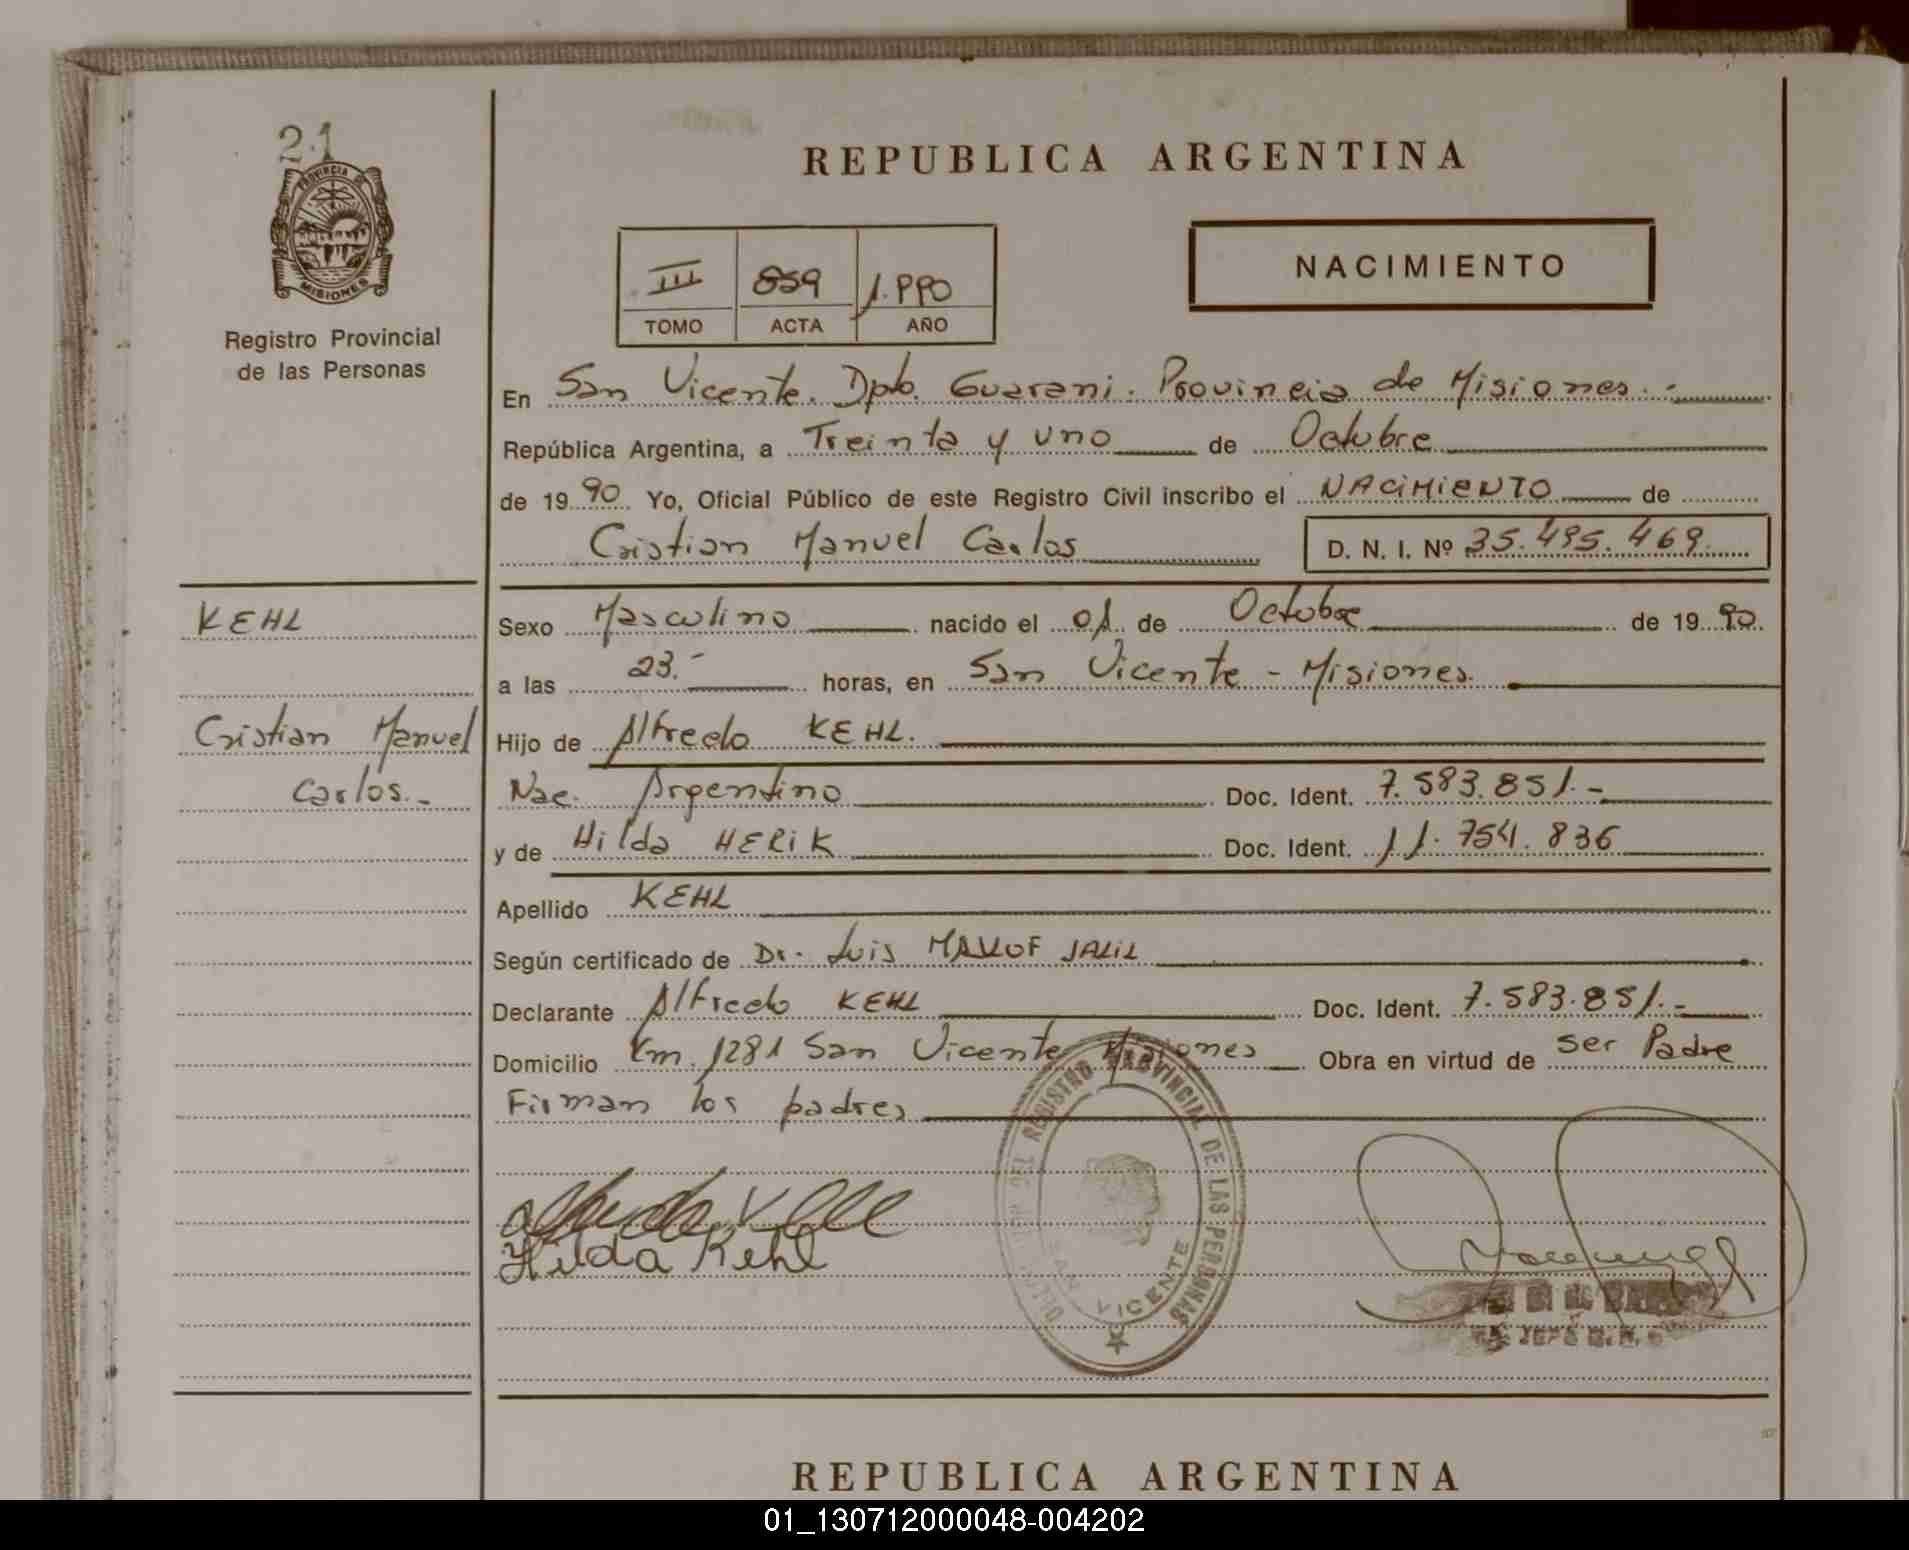 21
PROVINCIA DE
MISIONES
Registro Provincial
de las Personas
REPUBLICA ARGENTINA
III 859 1.990
TOMO ACTA AÑO
NACIMIENTO
En San Vicente. Dpto. Guarani. Provincia de Misiones.-
República Argentina, a Treinta y uno de Octubre
de 1990 Yo, Oficial Público de este Registro Civil inscribo el NACIMIENTO de
Cristian Manuel Carlos D. N. I. Nº 35.495.469.
KEHL
Cristian Manuel
Carlos.-
Sexo Masculino nacido el 01 de Octubre de 1990.
a las 23.- horas, en San Vicente - Misiones.
Hijo de Alfredo KEHL.
Nac. Argentino Doc. Ident. 7.583.851.-
y de Hilda HERIK Doc. Ident. 11.754.836
Apellido KEHL
Según certificado de Dr. Luis JALIL
Declarante Alfredo KEHL Doc. Ident. 7.583.851.-
Domicilio Km. 1281 San Vicente Misiones Obra en virtud de ser Padre
Firman los padres
DEL REGISTRO PROVINCIAL DE LAS PERSONAS
SAN VICENTE
Hilda Kehl
REPUBLICA ARGENTINA
01_130712000048-004202